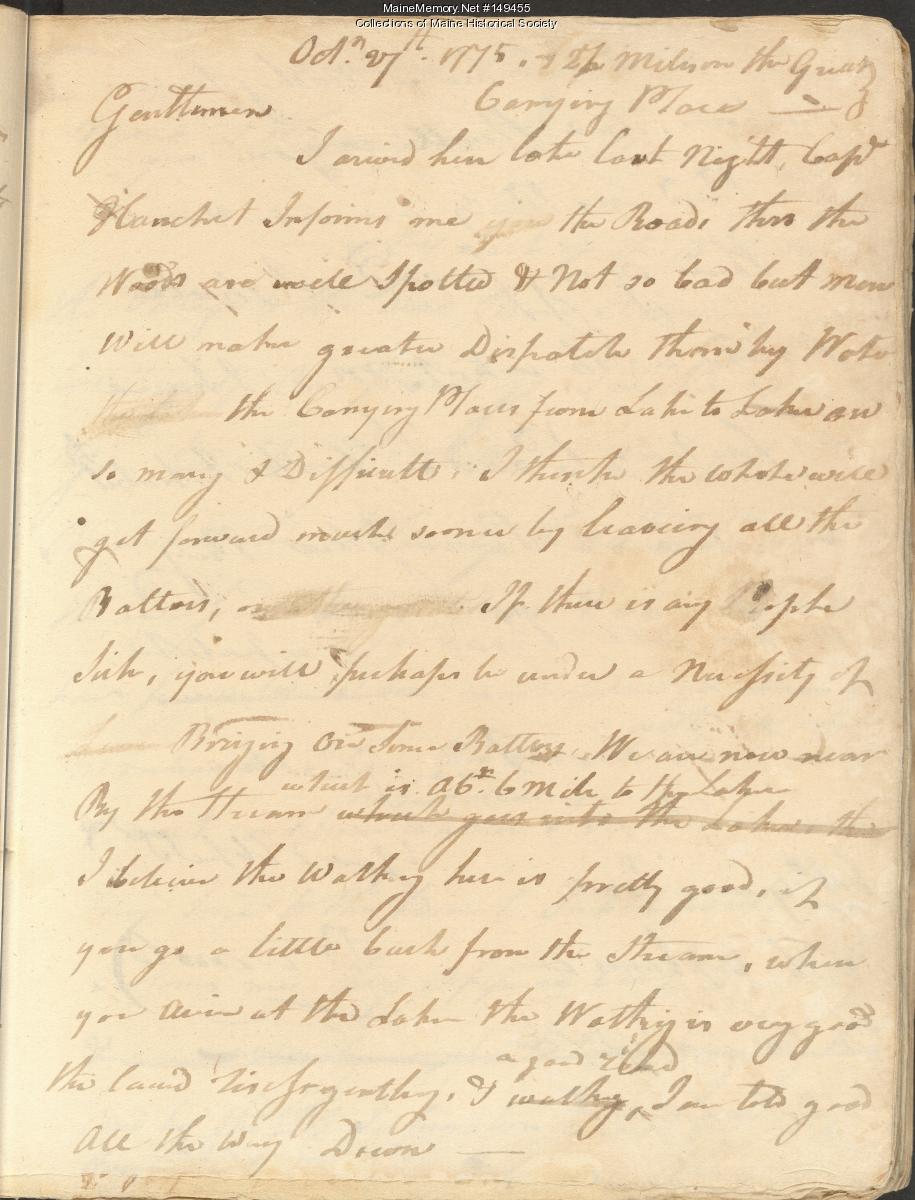 MaineMemory.Net #149455
Collections of Maine Historical Society
Octr. 27th. 1775. 2½ Miles on the Great
Gentlemen Carrying Place —
I arived here late last Night, Capt
Hanchet Informs me the Roads thro the
Woods are well Spotted & Not so bad but men
Will make greater Dispatch than by Water
the Carrying Places from Lake to Lake are
so many & Difficult, I think the whole will
get forward much sooner by leaveing all the
Battoes, If there is any People
Sick, you will perhaps be under a Necessity of
Bringing On Some Battoes. We are now near
which is abt. 6 Mile to the Lake
By the Stream which goes into the Lake, the
I beleive the Walking here is pretty good, if
you go a little back from the Stream, when
you arive at the Lake the Walking is very good
a good road
the land rises gently, & walking, I am told good
All the way Down —